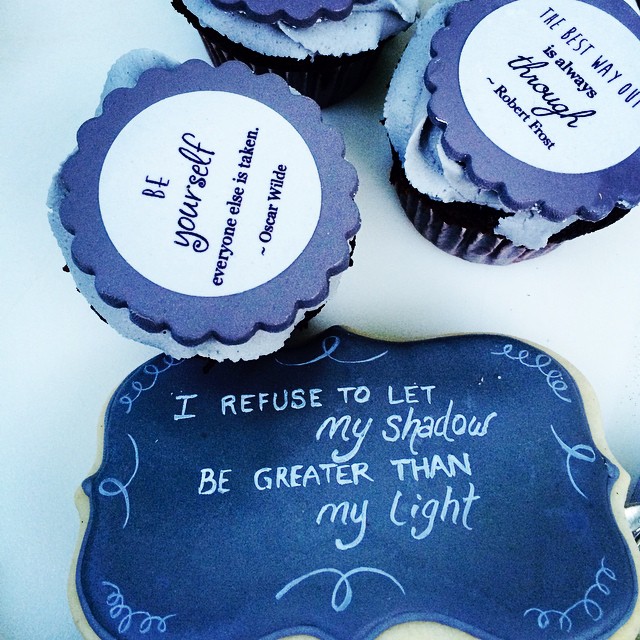 BE
yourself
everyone else is taken.
~ Oscar Wilde
THE BEST WAY OUT
is always
through
~ Robert Frost
I REFUSE TO LET
my shadow
BE GREATER THAN
my light